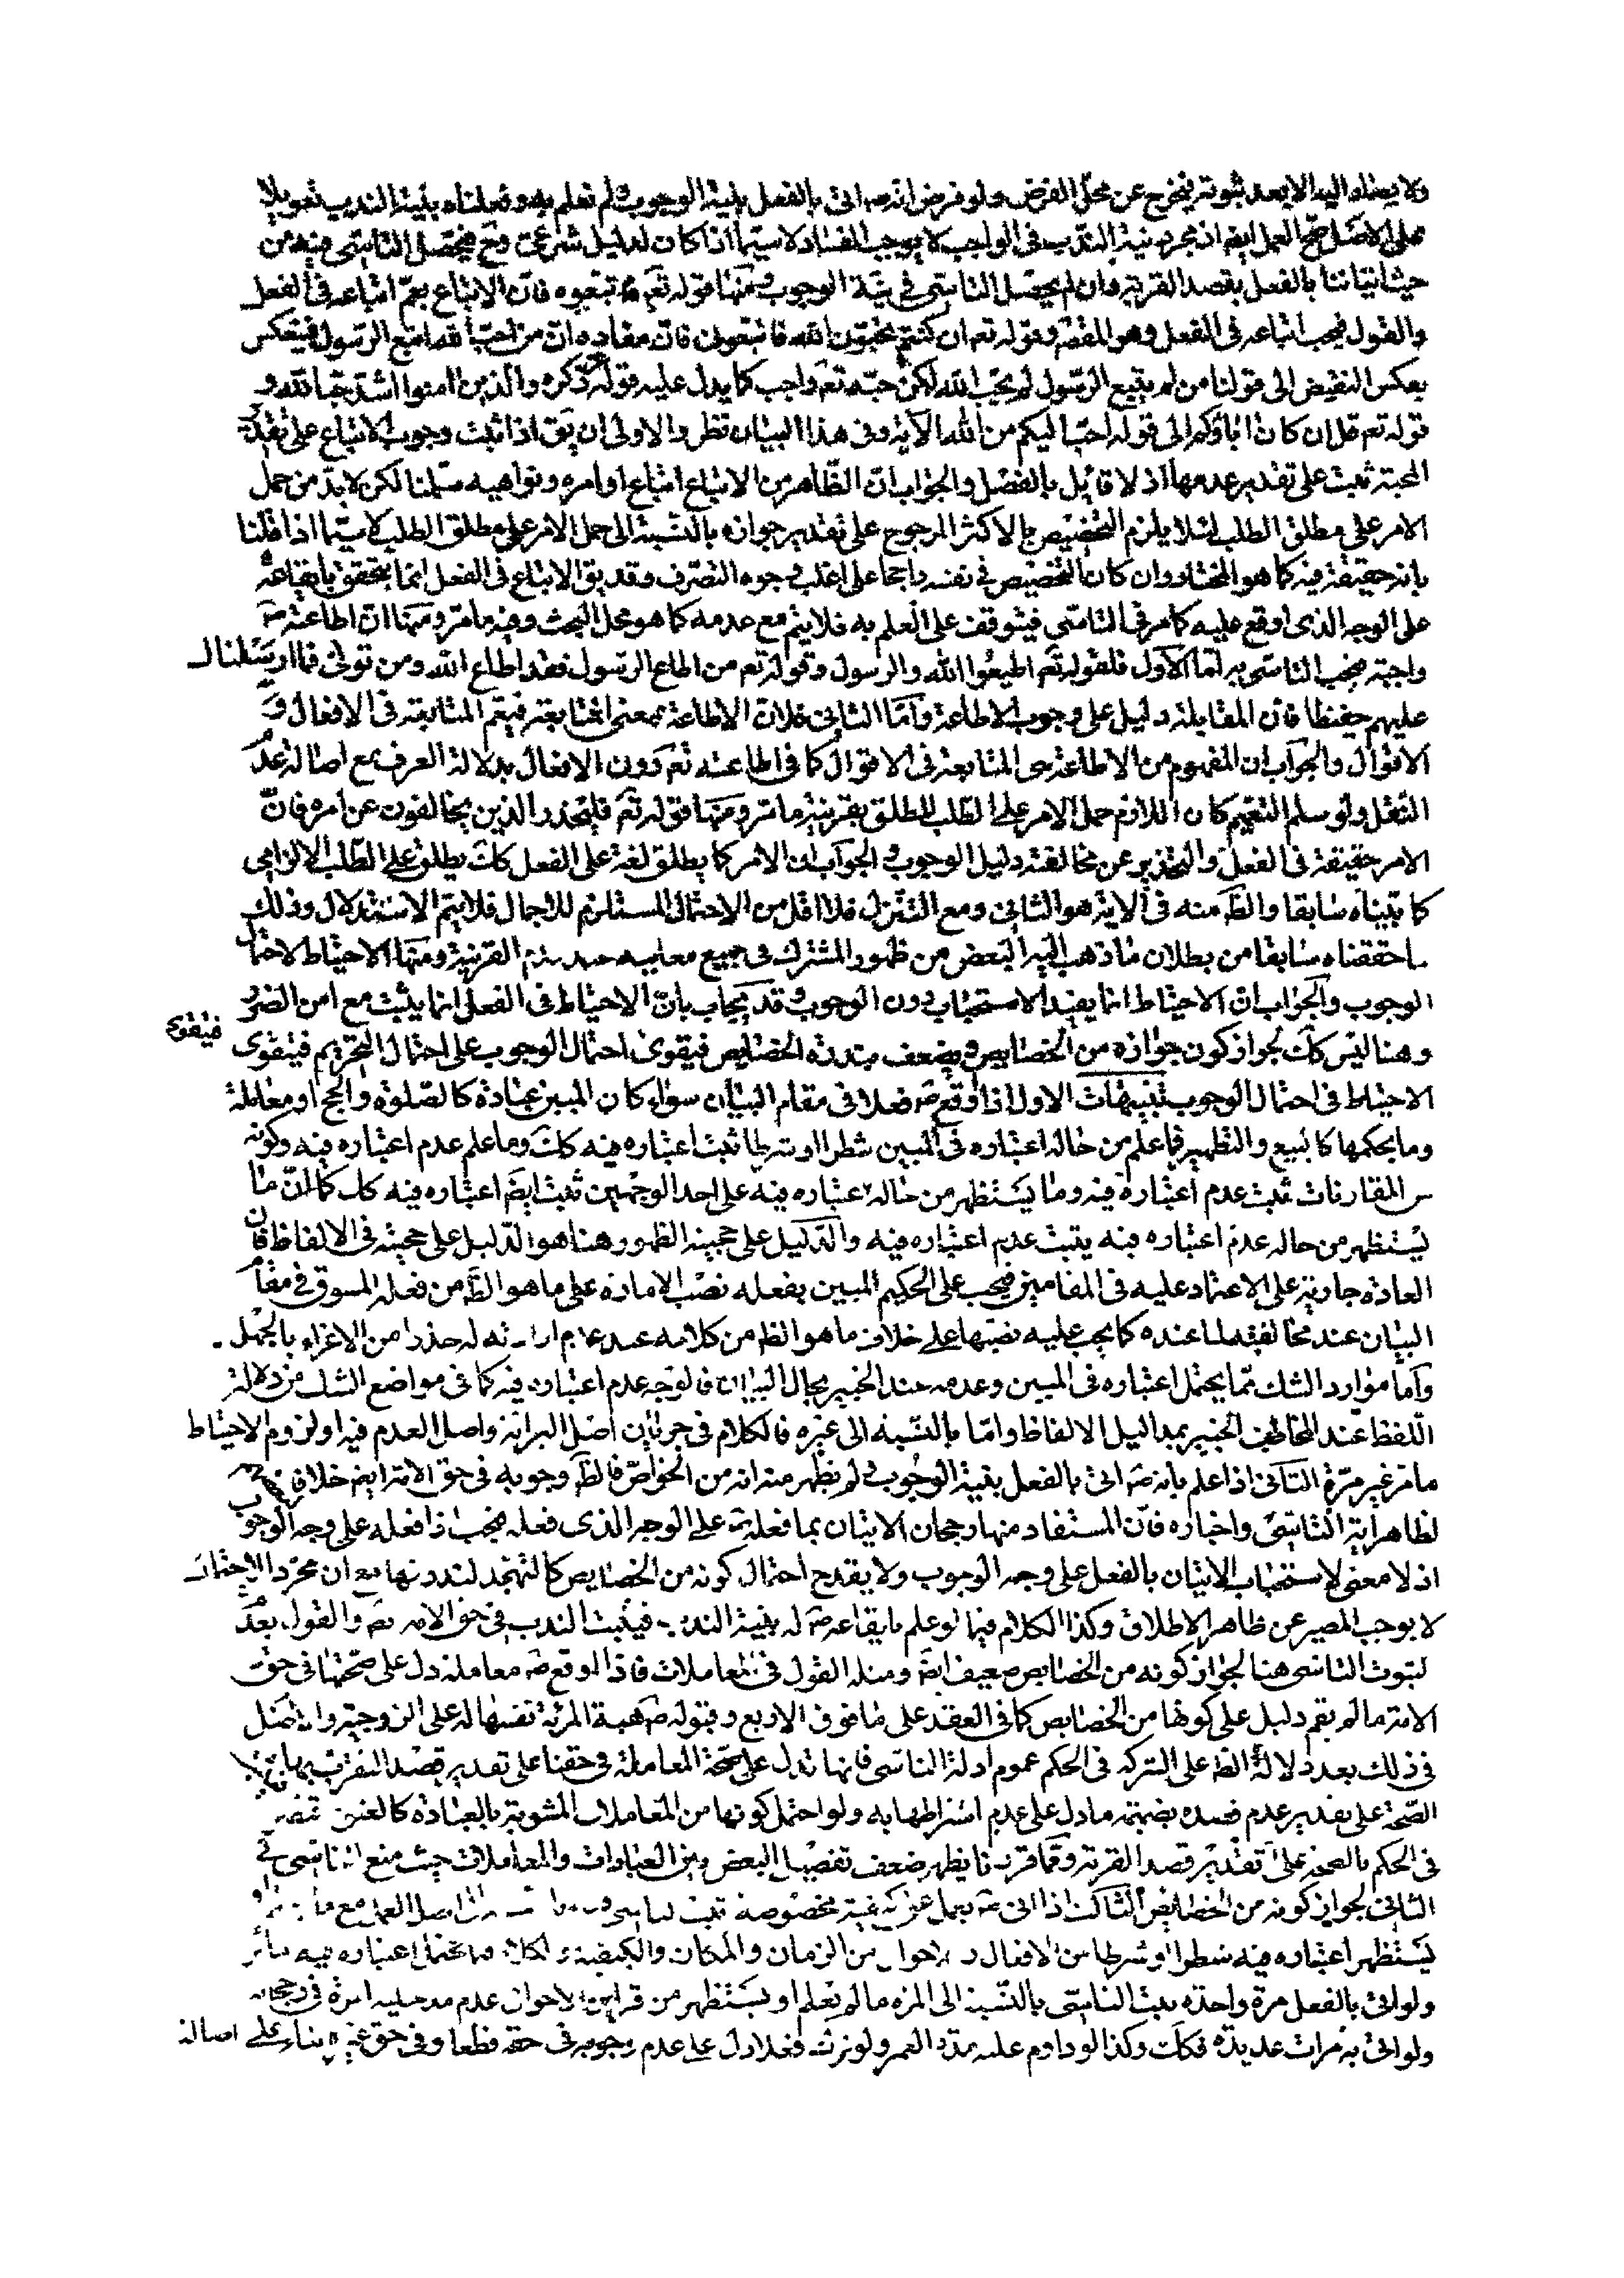 ولا يصار اليه الا بعد ثبوته فيخرج عن محل الفرض ولو فرض انه ص اتى بالفعل بنية الوجوب ولم نعلم به وفعلناه بنية الندب تعويلا
على الاصل صح العمل ايضا اذ مجرد نية الندب فى الواجب لا يوجب الفساد لا سيما اذا كان لدليل شرعى وح فيحصل التاسى فيه من
حيث اتياننا بالفعل بقصد القربة وان لم يحصل التاسى فى نية الوجوب ومنها قوله تعم فاتبعوه فان الاتباع يعم اتباعه فى الفعل
والقول فيجب اتباعه فى الفعل وهو المقصود وقوله تعم ان كنتم تحبون الله فاتبعونى فان مفاده ان من احب الله اتبع الرسول فينعكس
بعكس النقيض الى قولنا من لم يتبع الرسول لم يحب الله لكن حبه تعم واجب كما يدل عليه قوله عز ذكره والذين امنوا اشد حبا لله و
قوله تعم قل ان كان اباؤكم الى قوله احب اليكم من الله الآية وفى هذا البيان نظر والاولى ان يق اذا ثبت وجوب الاتباع على تقدير
المحبة ثبت على تقدير عدمها اذ لا قائل بالفصل والجواب ان الظاهر من الاتباع اتباع اوامره ونواهيه سلمنا لكن لا بد من حمل
الامر على مطلق الطلب لئلا يلزم التخصيص بالاكثر المرجوح على تقدير جوازه بالنسبة الى حمل الامر على مطلق الطلب لا سيما اذا قلنا
بانه حقيقة فيه كما هو المختار وان كان التخصيص فى نفسه راجحا على اغلب وجوه التصرف وقد يق الاتباع فى الفعل انما يتحقق بايقاعه
على الوجه الذى اوقع عليه كما مر فى التاسى فيتوقف على العلم به فلا يتم مع عدمه كما هو محل البحث وفيه ما مر ومنها ان اطاعته ص
واجبة فيجب التاسى به اما الاول فلقوله تعم اطيعوا الله والرسول وقوله تعم من اطاع الرسول فقد اطاع الله ومن تولى فما ارسلناك
عليهم حفيظا فان المقابلة دليل على وجوب الاطاعة واما الثانى فلان الاطاعة بمعنى المتابعة فيعم المتابعة فى الافعال و
الاقوال والجواب ان المفهوم من الاطاعة هى المتابعة فى الاقوال كما فى اطاعته تعم دون الافعال بدلالة العرف مع اصالة عدم
النقل ولو سلم التعميم كان اللازم حمل الامر على الطلب المطلق بقرينة ما مر ومنها قوله تعم فليحذر الذين يخالفون عن امره فان
الامر حقيقة فى الفعل والتحذير عن مخالفته دليل الوجوب والجواب ان الامر كما يطلق لغة على الفعل كك يطلق على الطلب الالزامى
كما بيناه سابقا والظ منه فى الآية هو الثانى ومع التنزل فلا اقل من الاحتمال المستلزم للاجمال فلا يتم الاستدلال وذلك
ما حققناه سابقا من بطلان ما ذهب اليه البعض من ظهور المشترك فى جميع معانيه عند عدم القرينة ومنها الاحتياط لاحتمال
الوجوب والجواب ان الاحتياط انما يفيد الاستحباب دون الوجوب وقد يجاب بان الاحتياط فى الفعل انما يثبت مع امن الضرر
وهنا ليس كك لجواز كون جوازه من الخصايص ويضعف بندرة الخصايص فيقوى احتمال الوجوب على احتمال التحريم فيتقوى
فيتقوى
الاحتياط فى احتمال الوجوب تنبيهات الاول اذا اوقع ص فعلا فى مقام البيان سواء كان المبين عبادة كالصلوة والحج او معاملة
وما بحكمها كالبيع والتطهير فما علم من حاله اعتباره فى المبين شطرا او شرطا ثبت اعتباره فيه كك وما علم عدم اعتباره فيه وكونه
من المقارنات ثبت عدم اعتباره فيه وما يستظهر من حاله اعتباره فيه على احد الوجهين ثبت ايض اعتباره فيه كك كما ان ما
يستظهر من حاله عدم اعتباره فيه يثبت عدم اعتباره فيه والدليل على حجية الظهور هنا هو الدليل على حجيته فى الالفاظ فان
العادة جارية على الاعتماد عليه فى المقامين فيجب على الحكيم المبين بفعله نصب الامارة على ما هو الظ من فعله المسوق فى مقام
البيان عند مخالفته لما عنده كما يجب عليه نصبها على خلاف ما هو الظ من كلامه عند عدم ارادته له حذرا من الاغراء بالجهل
واما موارد الشك مما يحتمل اعتباره فى المبين وعدمه عند الخبير بحال البيان فالوجه عدم اعتباره فيه كما فى مواضع الشك من دلالة
اللفظ عند المخاطب الخبير بمداليل الالفاظ واما بالنسبة الى غيره فالكلام فى جريان اصل البرائة واصل العدم فيه او لزوم الاحتياط
ما مر غير مرة الثانى اذا علم بانه ص اتى بالفعل بنية الوجوب ولم يظهر منه انه من الخواص فالظ وجوبه فى حق الامة ايض خلافا
لظاهر اية التاسى واخباره فان المستفاد منها رجحان الاتيان بما فعله ص على الوجه الذى فعله فيجب اذا فعله على وجه الوجوب
اذ لا معنى لاستحباب الاتيان بالفعل على وجه الوجوب ولا يقدح احتمال كونه من الخصايص كالتهجد لندرتها مع ان مجرد الاحتمال
لا يوجب المصير عن ظاهر الاطلاق وكذا الكلام فيما لو علم بايقاعه ص له بنية الندب فيثبت الندب فى حق الامة ايض والقول بعدم
لثبوت التاسى هنا لجواز كونه من الخصايص ضعيف ايض ومثله القول فى المعاملات فاذا اوقع ص معاملة دل على صحتها فى حق
الامة ما لم يقم دليل على كونها من الخصايص كما فى العقد على ما فوق الاربع وقبوله ص هبة المرئة نفسها له على الزوجية والاصل
فى ذلك بعد دلالة الظ على الشركة فى الحكم عموم ادلة التاسى فانها تدل على صحة المعاملة فى حقنا على تقدير قصد التقرب بها
الصحة على تقدير عدم قصده بضميمة ما دل على عدم اشتراطها به ولو احتمل كونها من المعاملات المشوبة بالعبادة كالعتق
فى الحكم بالصحة على تقدير قصد القربة ومما قررنا يظهر ضعف تفصيل البعض بين العبادات والمعاملات حيث منع التاسى فى
الثانى لجواز كونه من الخصايص الثالث اذا اتى ص بعمل على كيفية مخصوصة ثبت التاسى اصل العمل مع
يستظهر اعتباره فيه شطرا او شرطا من الافعال والاحوال من الزمان والمكان والكيفية يحتمل اعتباره فيه
ولو اتى بالفعل مرة واحدة يثبت التاسى بالنسبة الى المرة ما لم يعلم او يستظهر من قراين الاحوال عدم مدخلية المرة فى رجحانه
ولو اتى به مرات عديدة فكك وكذا لو داوم عليه مدة العمر ولو ترك فعلا دل على عدم وجوبه فى حقه قطعا وفى حق غيره بناء على اصالة